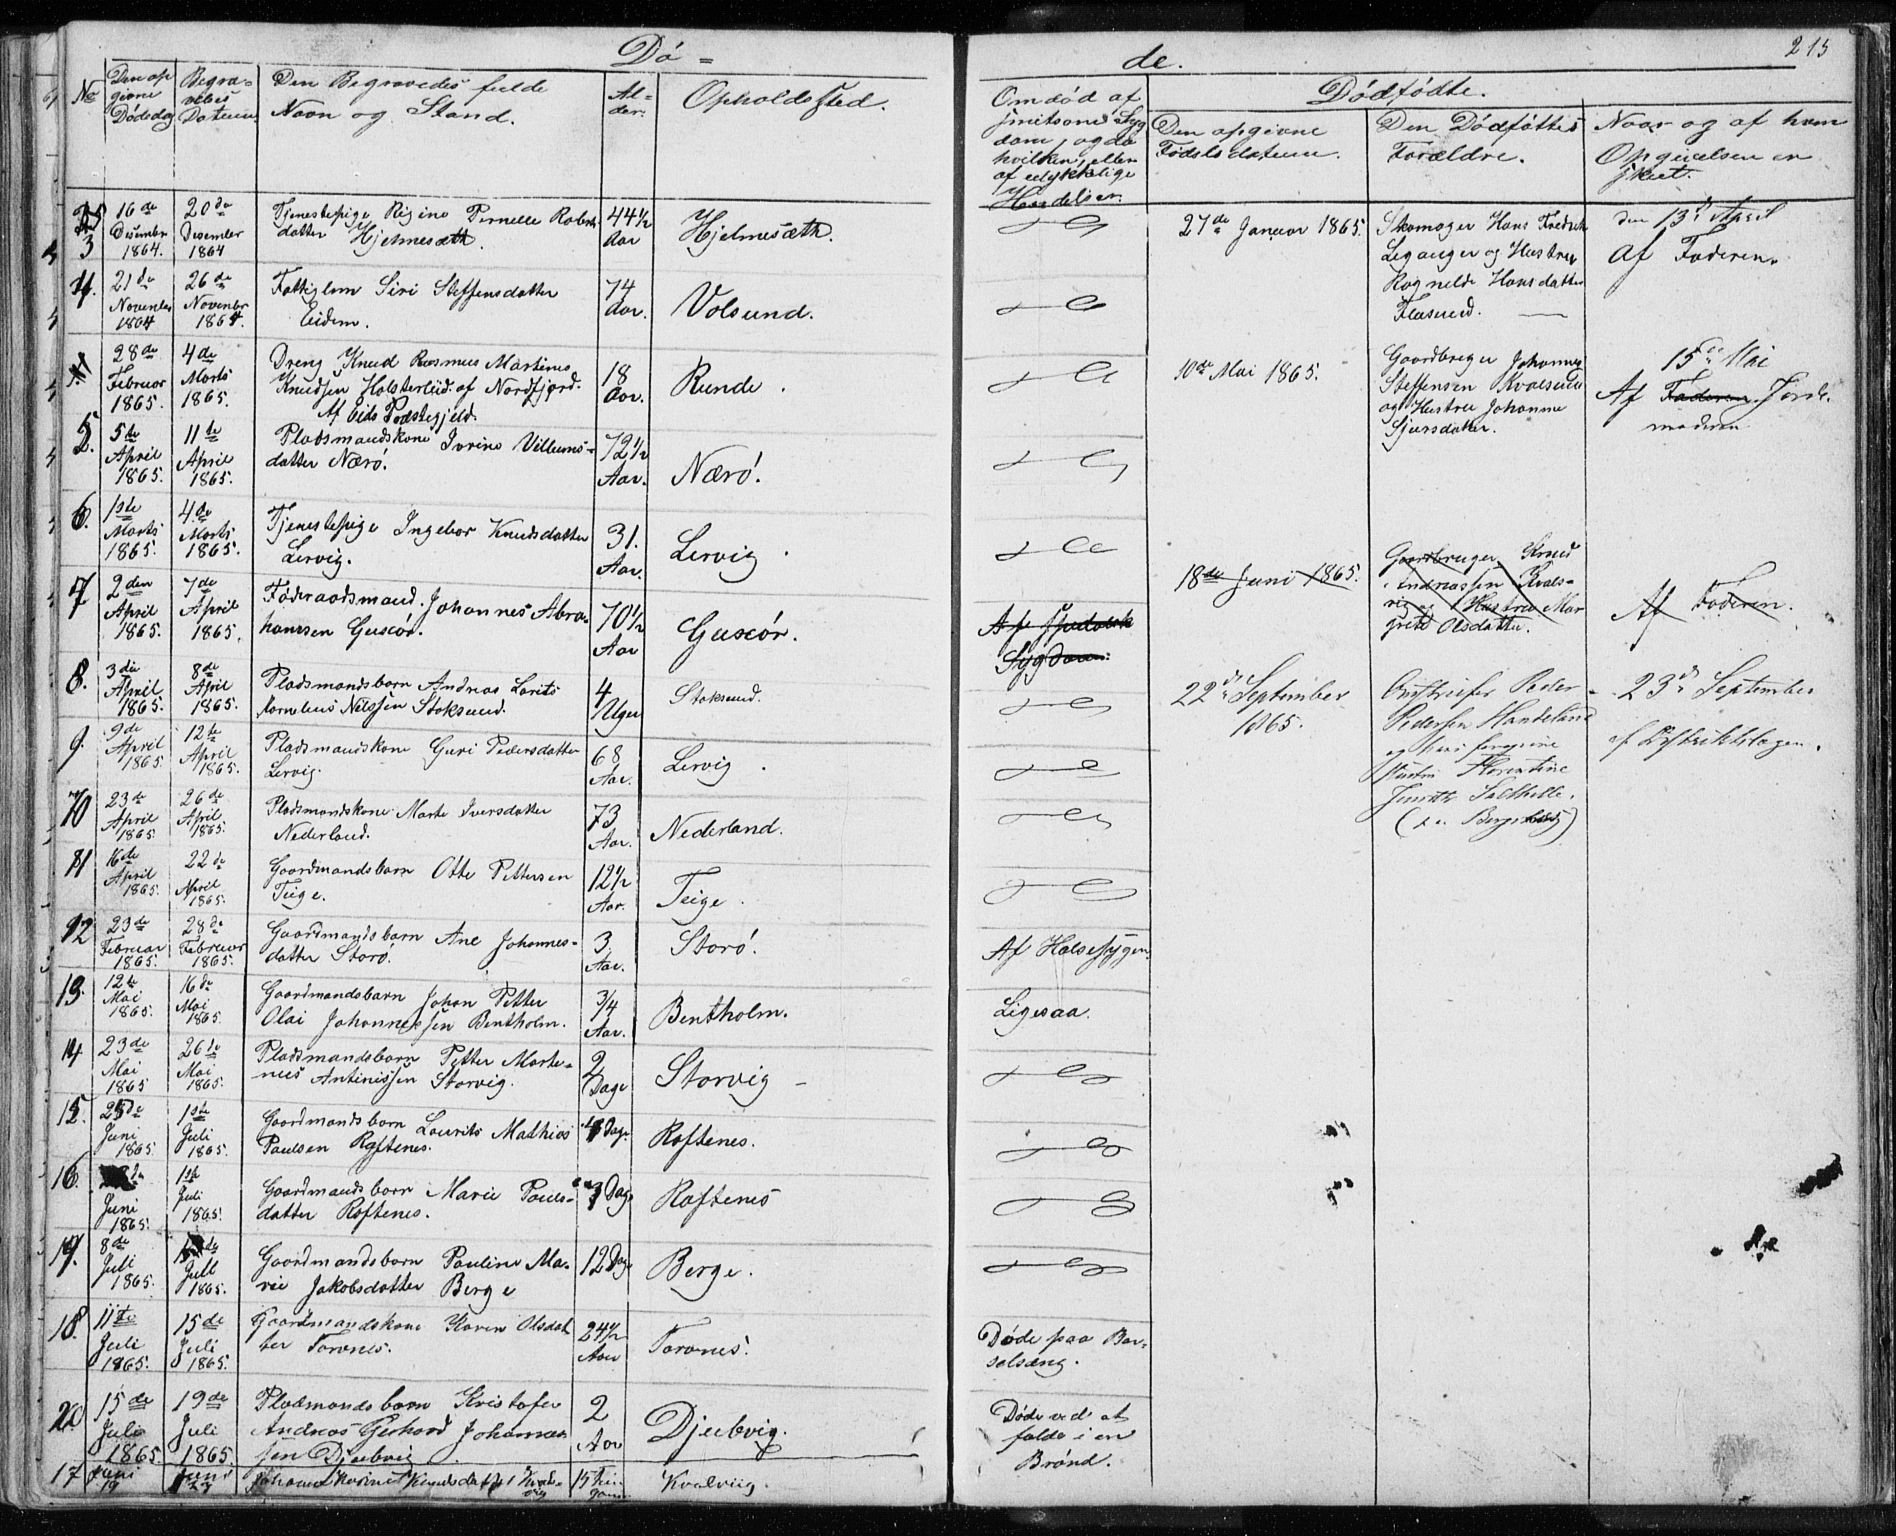 215
Dö = de.
No
Den op
givne
Dödsdag
Begra=
velses
Datum
Den Begravedes fulde
Navn og Stand.
Al=
der.
Opholdssted.
Om död af
smitsom Syg
dom, og da
hvilken, eller
af ulykkelige
Hendelser.
Dödfödte.
Den opgivne
Födsels datum.
Den Dödföttes
Forældre.
Naar og af hvem
Opgivelsen er
skeet.
3
16de
Desember
1864.
20de
Desember
1864
Tjenestepige Regine Pernelle Robert
datter Hjelmesæth.
44½
Aar
Hjelmesæth.
4.
21de
November
1864
26de
Novembr
1864.
Fattiglem Siri Steffensdatter
Eidem.
74
Aar.
Volsund.
28de
Februar
1865.
4de
Marts
1865.
Dreng Knud Rasmus Martinus
Knudsen Holsterlid. af Nordfjord.
Af Eids Præstegjeld.
18
Aar.
Runde.
5.
5te
April
1865.
11de
April
1865.
Pladsmandskone Ivrine Villums=
datter Nærö.
72½
Aar.
Nærö.
6.
1ste
Marts
1865.
4de
Marts
1865.
Tjenestepige Ingebor Knudsdatter
Lervig.
31.
Aar.
Lervig.
7
2den
April
1865.
7de
April
1865.
Föderaadsmand. Johannes Abra=
hamsen Guscör.
70½
Aar
Guscör.
Af Spedalsk
Sygdom.
8.
3die
April
1865.
8de
April
1865.
Pladsmandsbarn Andreas Lorits
Kornelius Nilssen Stoksund.
4
Uger
Stoksund.
9.
9de
April
1865
12te
April
1865.
Pladsmandskone Guri Pedersdatter
Lervig.
68
Aar.
Lervig.
10
23de
April
1865
26de
April
1865.
Pladsmandskone Marte Iversdatter
Nederland.
73
Aar.
Nederland.
11
16de
April
1865.
22de
April
1865.
Gaardmandsbarn Otte Pettersen
Teige.
12½
Aar.
Teige.
12
23de
Februar
1865.
28de
Februar
1865.
Gaardmandsbarn Ane Johannes=
datter Storö.
3
Aar.
Storö.
Af Halssygen.
13.
12te
Mai
1865.
16de
Mai
1865
Gaardmandsbarn Johan Petter
Olai Johannessen Bentholm.
3/4
Aar.
Bentholm.
Ligesaa.
14
23de
Mai
1865
26de
Mai
1865.
Pladsmandsbarn Petter Marte=
nus Antinissen Storvig.
2
Dage
Storvig
15.
25de
Juni
1865
1ste
Juli
1865.
Gaardmandsbarn Lourits Mathias
Paulsen Roftenes.
Dage
Roftenes.
16.
Juni
1865.
1ste
Juli
1865.
Gaardmandsbarn Marie Pouls=
datter Roftenes.
Dage
Roftenes
19.
8de
Juli
1865.
Juli
1865.
Gaardmandsbarn Pauline Ma=
rie Jakobsdatter Berge
12 Dage
Berge.
18.
11te
Juli
1865.
15de
Juli
1865.
Gaardmandskone Karen Olsdat
ter Torvnes.
24½
Aar
Torvnes.
Döde paa Bar=
selsæng.
20
15de
Juli
1865
19de
Juli
1865.
Pladsmandsbarn Kristofer
Andreas Gerhard Johannes
sen Djubvig
2
Aar
Djubvig.
Döde ved at
falde i en
Brönd.
17
Juni
19
Juni
Knudsdatter
Kvalviig.
27de Januar 1865.
Skomager Hans Fredrik
Leganger og Hustru
Rognelde Hansdatter
Flusund.
den 13de April
af Faderen.
10de Mai 1865.
Gaardbruger Johannes
Steffensen Kvalsund
og Hustru Johanne
Sjursdatter.
15de Mai
Af Faderen. Jorde=
moderen
18de Juni 1865.
Gaardbruger Knud
Andreassen Kvals=
vig og Hustru Mar
grete Olsdatter.
Af Faderen.
22de September
1865.
Peder
Pedersen Handeland
Florentine
23de September
af Distriktslægen.